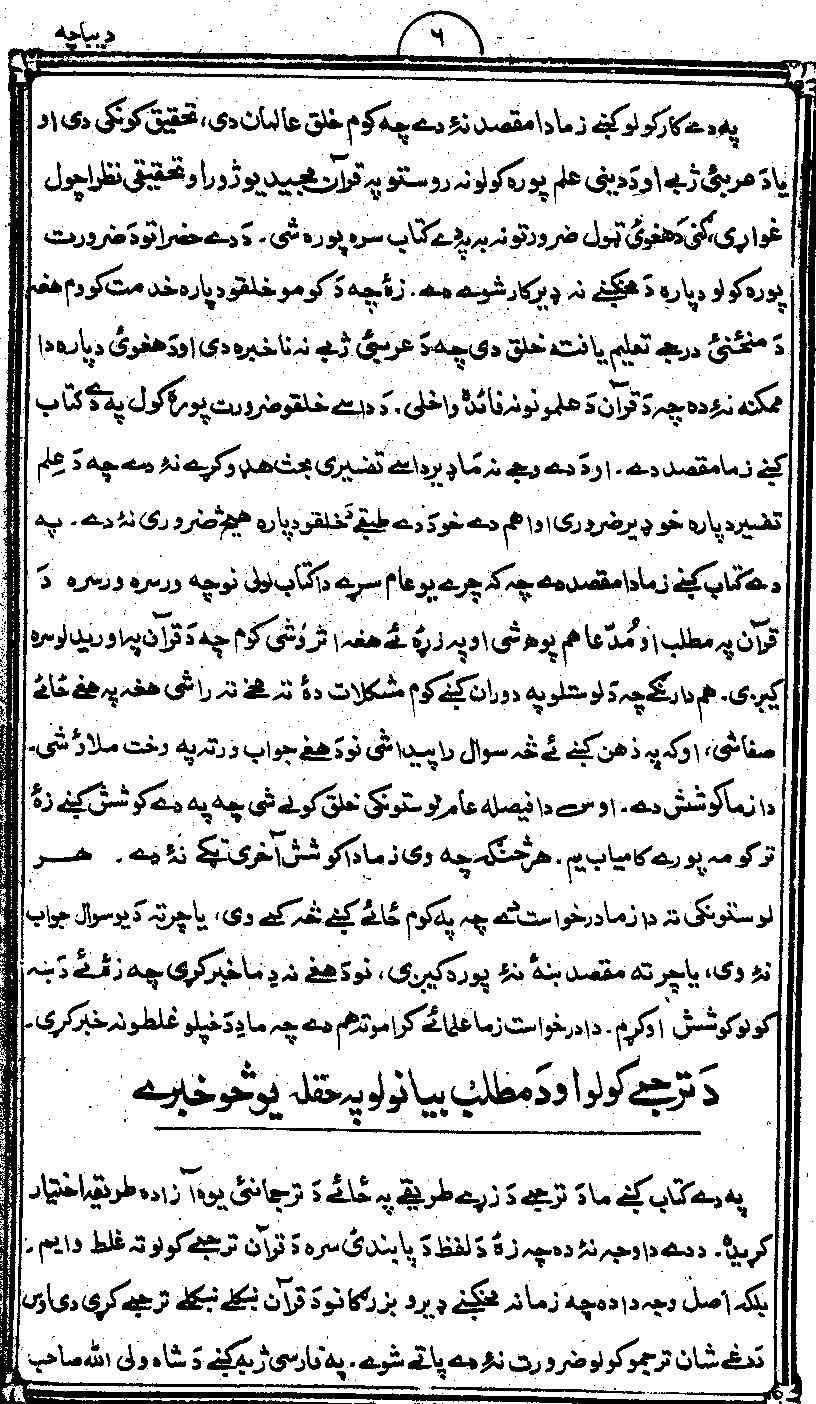 دیباچه
۶
په دے کار کولو کښے زما دا مقصد نۀ دے چه کوم خلق عالمان دی، تحقیق کونکی دی او
یا دَ عربئی ژبے او دَ دینی علم پوره کولو نه روستو په قرآن مجید یو ژور او تحقیقی نظر اچول
غواړی، کنی دَ هغوئ ټول ضرورتونه به په دے کتاب سره پوره شی۔ دَ دے حضراتو دَ ضرورت
پوره کولو دپاره دَ مخکښے نه ډیر کار شوے دے۔ زۀ چه دَ کومو خلقو دپاره خدمت کووم هغه
دَ منځنئی درجے تعلیم یافته خلق دی چه دَ عربئی ژبے نه ناخبره دی او دَ هغوئ دپاره دا
ممکنه نۀ ده چه دَ قرآن دَ علمونو نه فائده واخلی۔ دَ داسے خلقو ضرورت پوره کول په دے کتاب
کښے زما مقصد دے۔ او دَ دے وجے نه ما ډیر داسے تفسیری بحث هډو کړے نۀ دے چه دَ علم
تفسیر دپاره خو ډیر ضروری او اهم دے خو دَ دے طبقے دَ خلقو دپاره هیڅ ضروری نۀ دے۔ په
دے کتاب کښے زما دا مقصد دے چه که چرے یو عام سړے دا کتاب لولی نو چه ورسره ورسره دَ
قرآن په مطلب او مُدّعا هم پوهه شی او په زړۀ ئے هغه اثر وُشی کوم چه دَ قرآن په اوریدلو سره
کیږی۔ هم دارنګے چه دَ لوستلو په دوران کښے کوم مشکلات دۀ ته مخے ته راشی هغه په هغے ځائے
صفا شی، او که په ذهن کښے ئے څه سوال را پیدا شی نو دَ هغے جواب ورته په وخت ملاؤ شی۔
دا زما کوشش دے۔ اوس دا فیصله عام لوستونکی خلق کولے شی چه په دے کوشش کښے زۀ
تر کومه پورے کامیاب یم۔ هر څنګه چه وی زما دا کوشش آخری ټکے نۀ دے۔ هر
لوستونکی ته دا زما درخواست دے چه په کوم ځائے کښے څه کمے وی، یا چرته دَ یو سوال جواب
نۀ وی، یا چرته مقصد ښۀ نۀ پوره کیږی، نو دَ هغے نه دِ ما خبر کړی چه زۀ ئے دَ ښه
کولو کوشش اوکړم۔ دا درخواست زما علمائے کرامو ته هم دے چه ما دِ دَ خپلو غلطو نه خبر کړی۔
دَ ترجمے کولو او دَ مطلب بیانولو په حقله یو څو خبرے
په دے کتاب کښے ما دَ ترجمے دَ زړے طریقے په ځائے دَ ترجمانئی یوه آزاده طریقه اختیار
کړیده۔ ددے دا وجه نۀ ده چه زۀ دَ لفظ دَ پابندئ سره دَ قرآن ترجمے کولو ته غلط وایم۔
بلکه اصل وجه دا ده چه زما نه مخکښے ډیرو بزرګانو دَ قرآن ښکلے ښکلے ترجمے کړی دی اوس
دَدغے شان ترجمو کولو ضرورت نۀ دے پاتے شوے۔ په فارسی ژبه کښے دَ شاه ولی الله صاحب